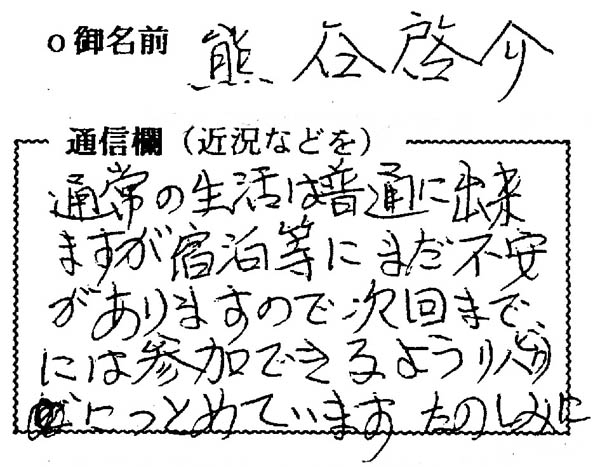 o 御名前 熊谷啓介
通信欄（近況などを）
通常の生活は普通に出来
ますが宿泊等にまだ不安
がありますので次回まで
には参加できるようリハビリ
につとめています たのしみに